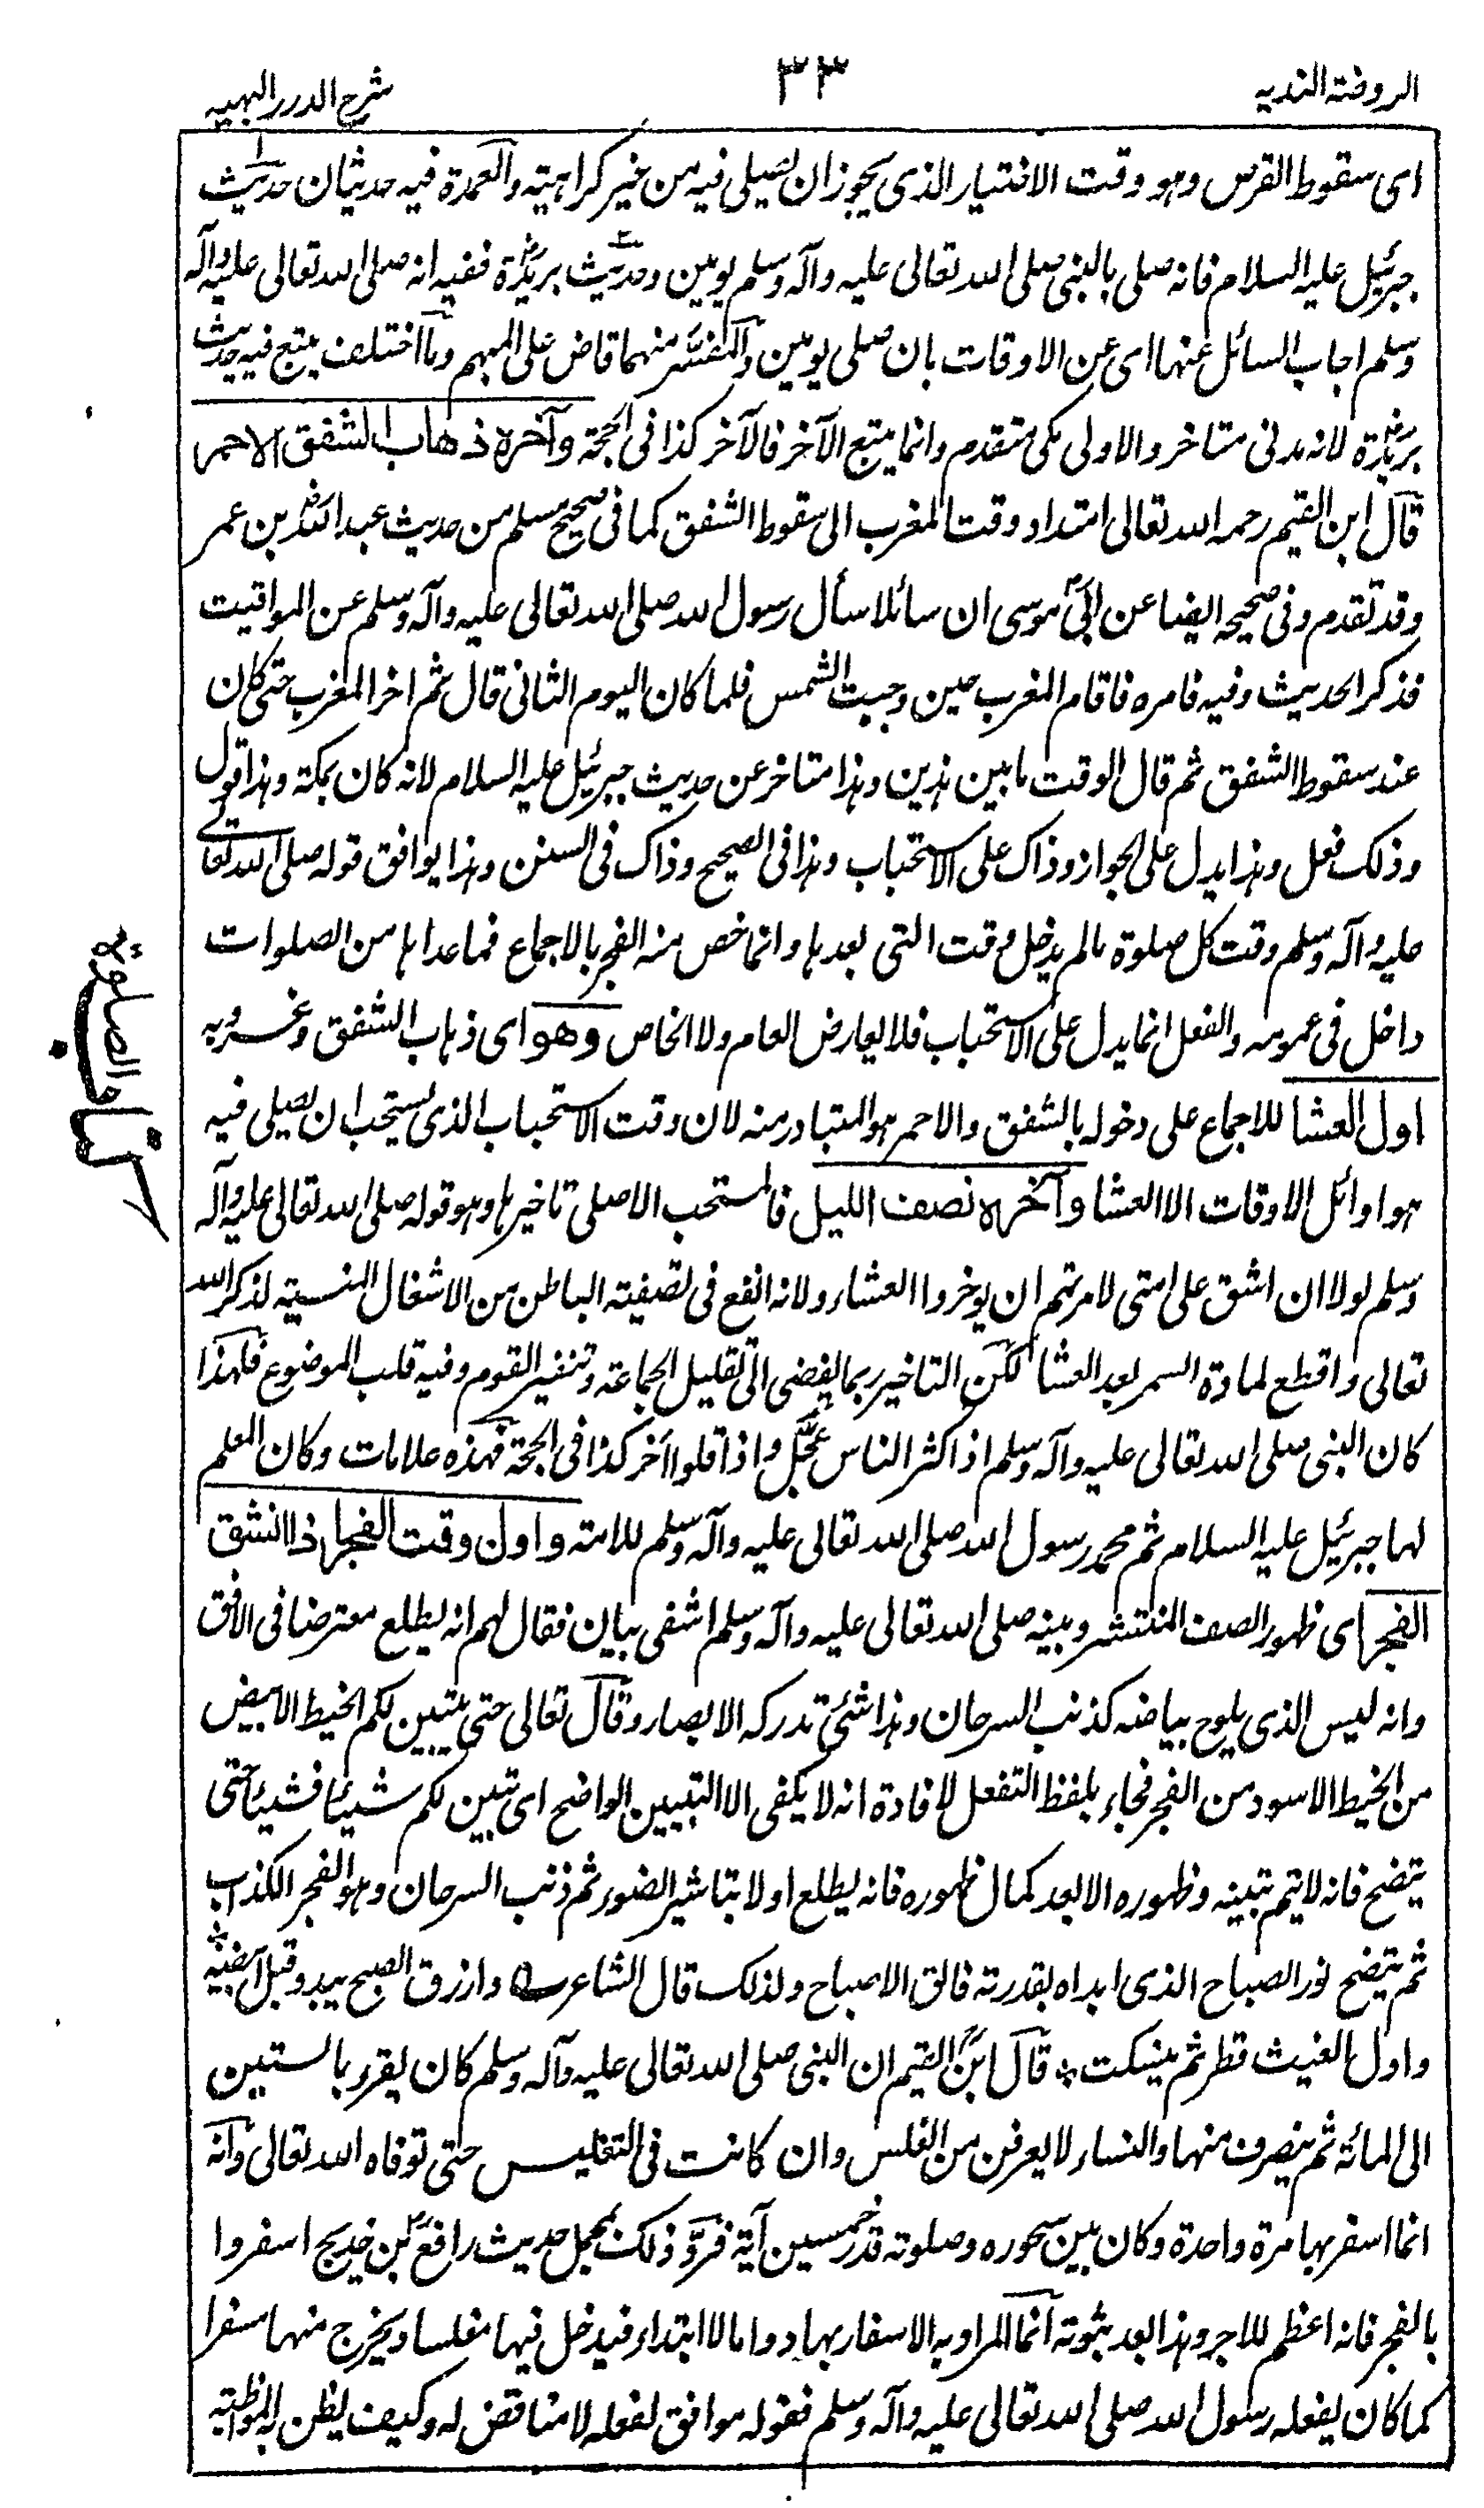 الروضة الندية
٣٣
شرح الدرر البهية
اى سقوط القرص وهو وقت الاختيار الذى يجوز ان يصلى فيه من غير كراهية والعمدة فيه حديثان حديث
جبرئيل عليه السلام فانه صلى بالنبى صلى الله تعالى عليه وآله وسلم يومين وحديث بريدة ففيه انه صلى الله تعالى عليه وآله
وسلم اجاب السائل عنها اى عن الاوقات بان صلى يومين والمفسر منهما قاض على المبهم وما اختلف يتبع فيه حديث
بريدة لانه مدنى متاخر والاولى مكى متقدم وانما يتبع الآخر فالآخر كذا فى الحجة وآخره ذهاب الشفق الاحمر
قال ابن القيم رحمه الله تعالى امتداد وقت المغرب الى سقوط الشفق كما فى صحيح مسلم من حديث عبد الله بن عمر
وقد تقدم وفى صحيحه ايضا عن ابى موسى ان سائلا سأل رسول الله صلى الله تعالى عليه وآله وسلم عن المواقيت
فذكر الحديث وفيه فامره فاقام المغرب حين وجبت الشمس فلما كان اليوم الثانى قال ثم اخر المغرب حتى كان
عند سقوط الشفق ثم قال الوقت ما بين هذين وهذا متاخر عن حديث جبرئيل عليه السلام لانه كان بمكة وهذا قول
وذلك فعل وهذا يدل على الجواز وذاك على الاستحباب وهذا فى الصحيح وذاك فى السنن وهذا يوافق قوله صلى الله تعالى
عليه وآله وسلم وقت كل صلوة مالم يدخل وقت التى بعدها وانما خص منه الفجر بالاجماع فما عداها من الصلوات
داخل فى عمومه والفعل انما يدل على الاستحباب فلا يعارض العام ولا الخاص وهو اى ذهاب الشفق وغروبه
اول العشا للاجماع على دخوله بالشفق والاحمر هو المتبادر منه لان وقت الاستحباب الذى يستحب ان يصلى فيه
هو اوائل الاوقات الا العشا وآخره نصف الليل فالمستحب الاصلى تاخيرها وهو قوله صلى الله تعالى عليه وآله
وسلم لولا ان اشق على امتى لامرتهم ان يوخروا العشاء ولانه انفع فى تصفية الباطن من الاشغال المنسية لذكر الله
تعالى واقطع لمادة السمر بعد العشا لكن التاخير ربما يفضى الى تقليل الجماعة وتنفير القوم وفيه قلب الموضوع فلهذا
كان النبى صلى الله تعالى عليه وآله وسلم اذا كثر الناس عجل واذا قلوا اخر كذا فى الحجة فهذه علامات وكان المعلم
لها جبرئيل عليه السلام ثم محمد رسول الله صلى الله تعالى عليه وآله وسلم للامة واول وقت الفجر اذا انشق
الفجر اى ظهور الصف المنتشر وبينه صلى الله تعالى عليه وآله وسلم اشفى بيان فقال لهم انه يطلع معترضا فى الافق
وانه ليس الذى يلوح بياضه كذنب السرحان وهذا شئ تدركه الابصار وقال تعالى حتى يتبين لكم الخيط الابيض
من الخيط الاسود من الفجر فجاء بلفظ التفعل لافادة انه لا يكفى الا التبيين الواضح اى يتبين لكم شيئا فشيئا حتى
يتضح فانه لا يتم تبينه وظهوره الا بعد كمال ظهوره فانه يطلع اولا بتاشير الضور ثم ذنب السرحان وهو الفجر الكذاب
ثم يتضح نور الصباح الذى ابداه بقدرته فالق الاصباح ولذلك قال الشاعر ؎ وازرق الصبح يبدو قبل ابيضه *
واول الغيث قطر ثم ينسكب * قال ابن القيم ان النبى صلى الله تعالى عليه وآله وسلم كان يقرر بالستين
الى المائة ثم ينصرف منها والنساء لا يعرفن من الغلس وان كانت فى التغليس حتى توفاه الله تعالى وانه
انما اسفر بها مرة واحدة وكان بين سحوره وصلوته قدر خمسين آية فرد ذلك بمجمل حديث رافع بن خديج اسفروا
بالفجر فانه اعظم للاجر وهذا بعد ثبوته انما المراد به الاسفار بها دواما لا ابتداء فيدخل فيها مغلسا ويخرج منها مسفرا
كما كان يفعله رسول الله صلى الله تعالى عليه وآله وسلم فقوله موافق لفعله لا مناقض له وكيف يظن به المواظبة
كتاب الصلوة